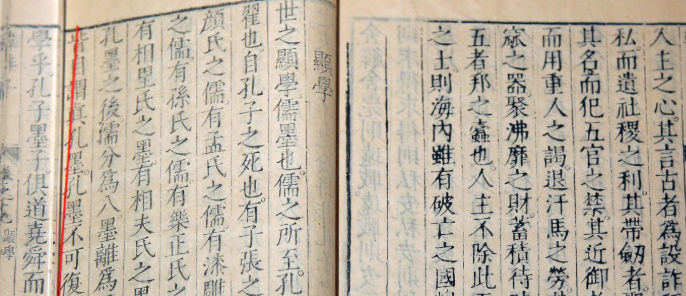 人主之心其言古者為設詐
私而遺社稷之利其帶劒者
其名而犯五官之禁其近御者
而用重人之謁退汗馬之勞
窳之器聚沸靡之財蓄積待
五者邦之蠹也人主不除此五
之士則海內雖有破亡之國
顯學
世之顯學儒墨也儒之所至孔
翟也自孔子之死也有子張之
顏氏之儒有孟氏之儒有漆雕
之儒有孫氏之儒有樂正氏之
有相里氏之墨有相夫氏之墨
孔墨之後儒分為八墨離為
謂真孔墨孔墨不可復
學乎孔子墨子俱道堯舜而
顯學